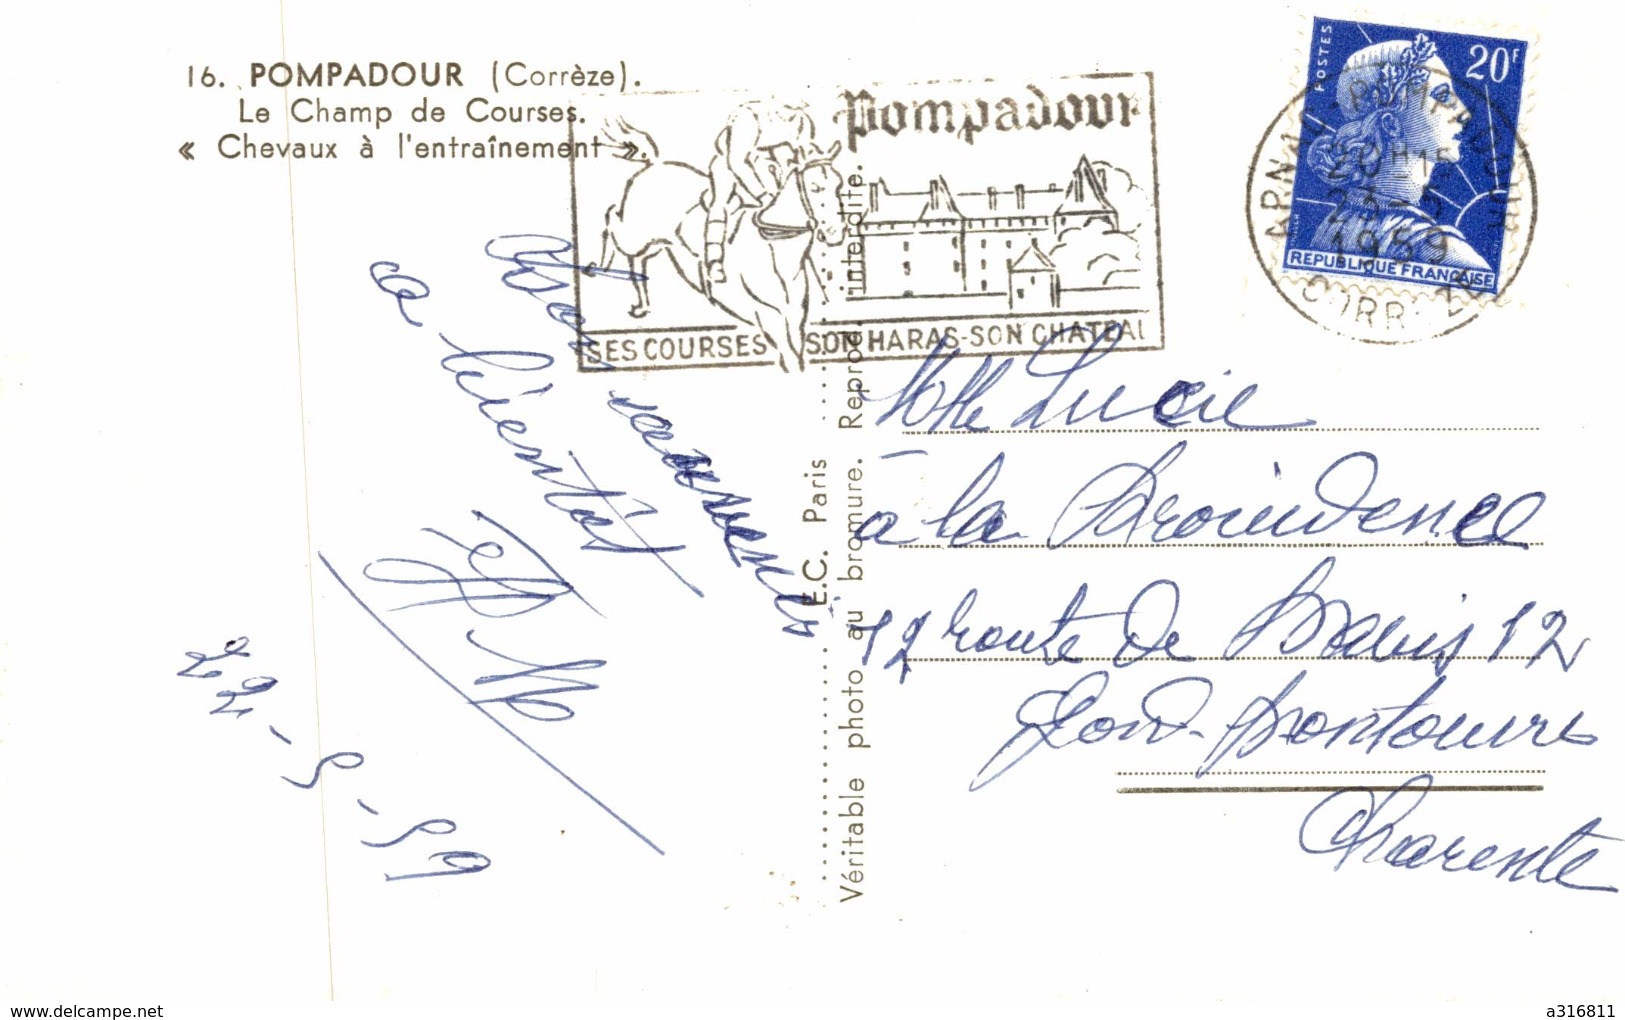 16. POMPADOUR (Corrèze).
Le Champ de Courses.
« Chevaux à l'entraînement ».
Pompadour
SES COURSES SON HARAS-SON CHATEAU
POSTES
20F
REPUBLIQUE FRANÇAISE
ARNAC-POMPADOUR
20H15
23-5
1959
CORRÈZE
Bon
à bientôt
22-5-59
E.C. Paris
Véritable photo au bromure. Reprod. interdite.
Mlle Lucie
à la Providence
72 route de Paris 12
Charente
delcampe.net
a316811